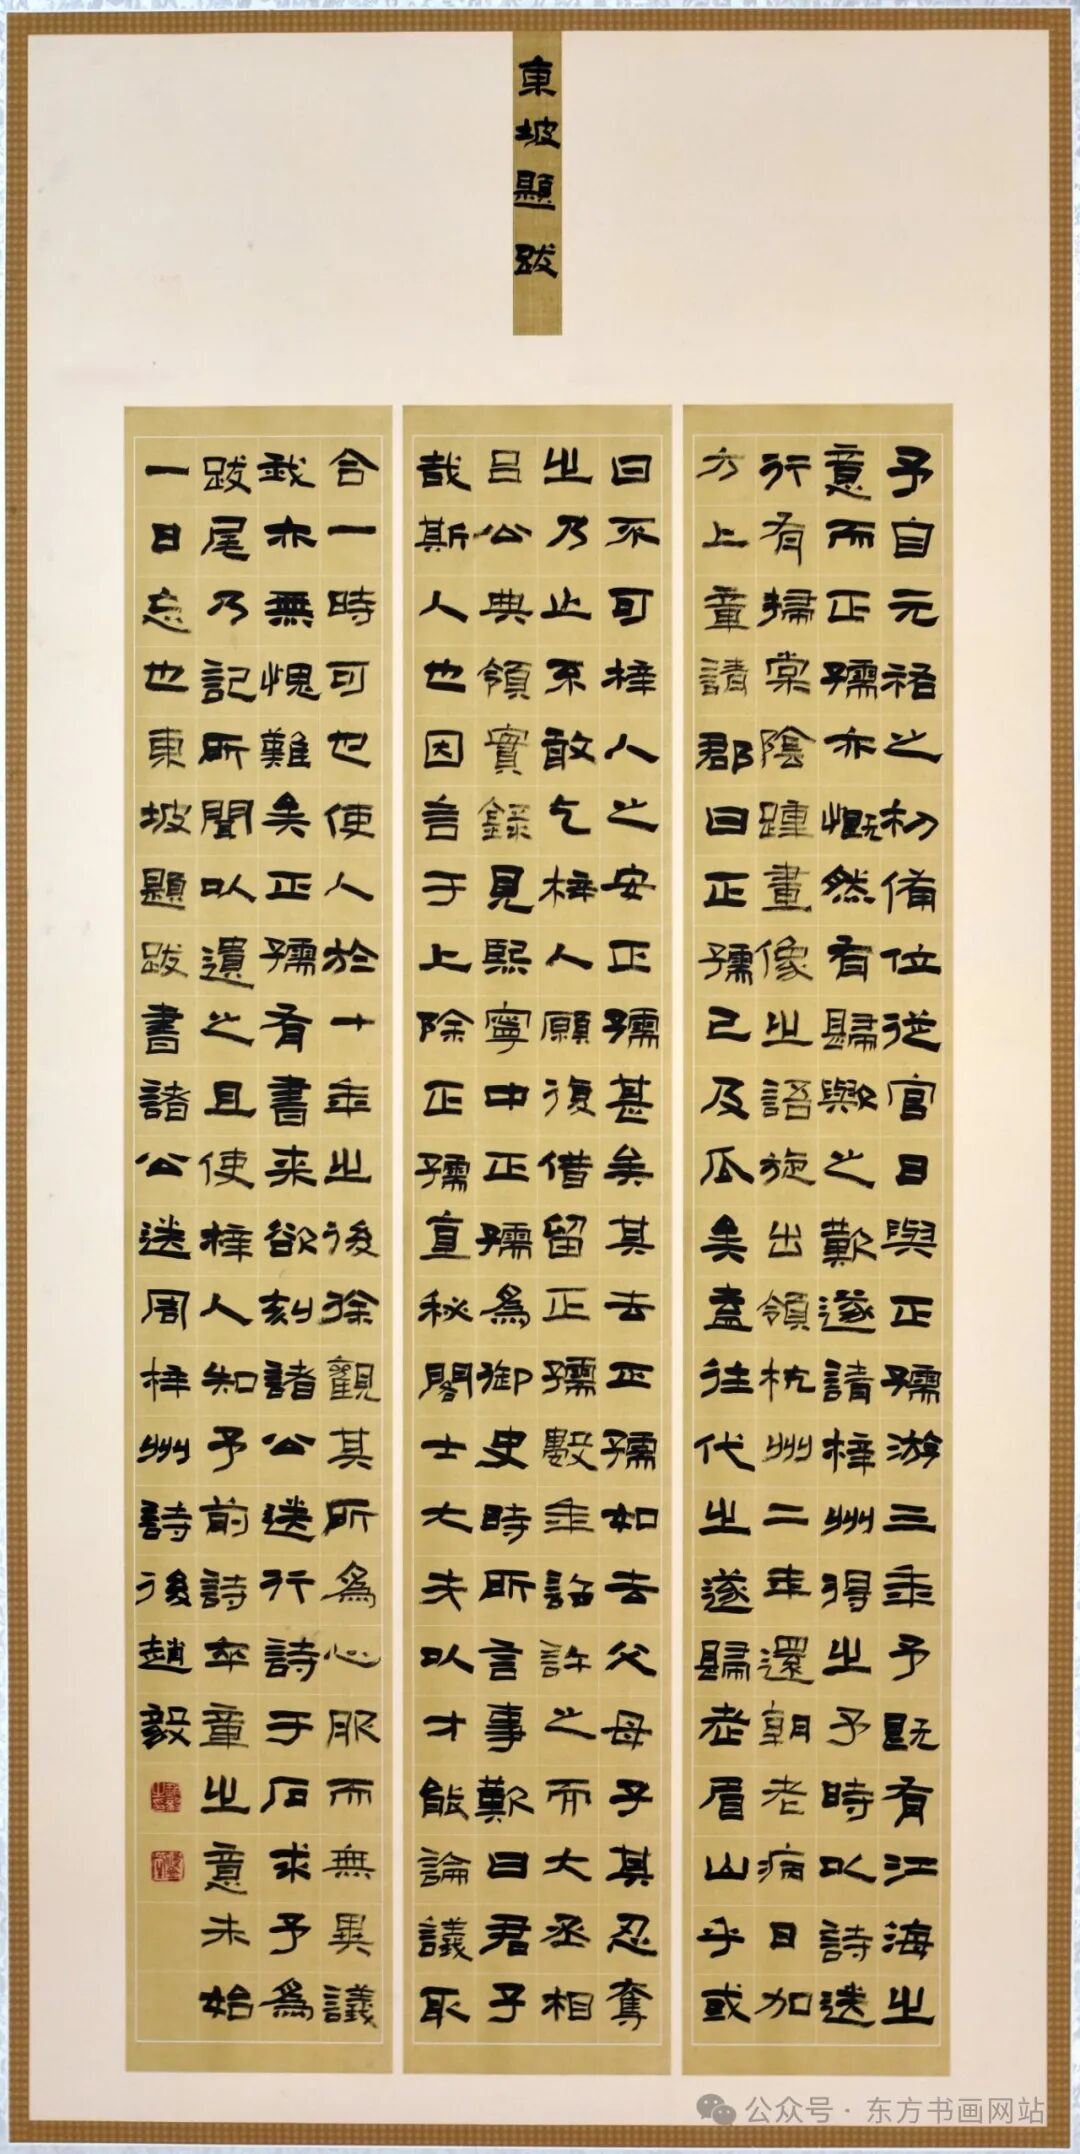 東坡題跋
予自元祐之初備位從官日與正孺游三年予既有江海之
意而正孺亦慨然有歸歟之歎遂請梓州得之予時以詩送
行有掃棠陰踵畫像之語旋出領杭州二年還朝老病日加
方上章請郡曰正孺已及瓜矣盍往代之遂歸老眉山乎或
曰不可梓人之安正孺甚矣其去正孺如去父母子其忍奪
之乃止不敢乞梓人願復借留正孺數年詔許之而大丞相
呂公典領實錄見熙寧中正孺為御史時所言事歎曰君子
哉斯人也因言于上除正孺直秘閣士大夫以才能論議取
合一時可也使人於十年之後徐觀其所為心服而無異議
我亦無愧難矣正孺有書来欲刻諸公送行詩于石求予為
跋尾乃記所聞以遺之且使梓人知予前詩卒章之意未始
一日忘也東坡題跋書諸公送周梓州詩後趙毅
公众号·东方书画网站